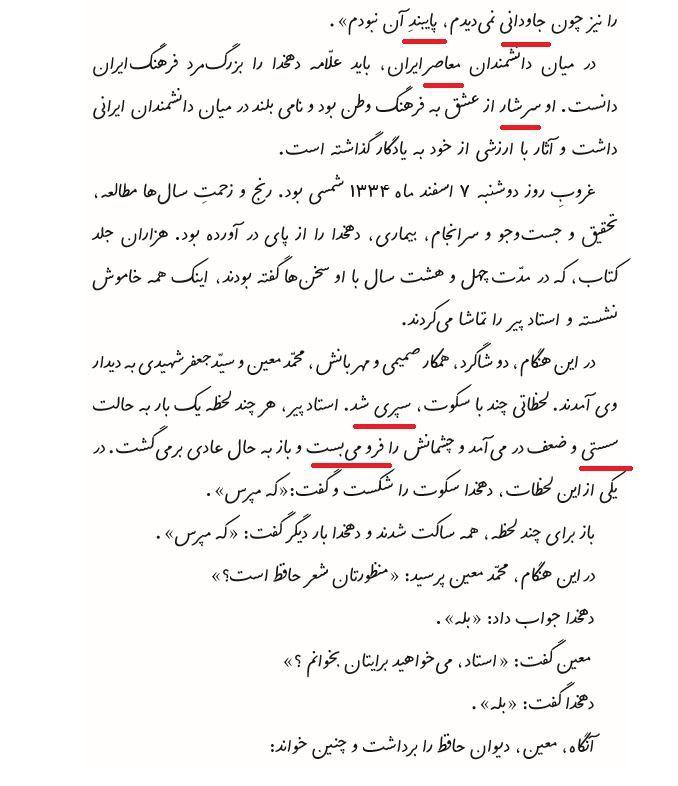 را نیز چون جاودانی نمی‌دیدم، پایبندِ آن نبودم».
در میان دانشمندان معاصر ایران، باید علّامه دهخدا را بزرگ‌مرد فرهنگ ایران
دانست. او سرشار از عشق به فرهنگ وطن بود و نامی بلند در میان دانشمندان ایرانی
داشت و آثار با ارزشی از خود به یادگار گذاشته است.
غروبِ روز دوشنبه ۷ اسفند ماه ۱۳۳۴ شمسی بود. رنج و زحمتِ سال‌ها مطالعه،
تحقیق و جست‌وجو و سرانجام، بیماری، دهخدا را از پای در آورده بود. هزاران جلد
کتاب، که در مدّت چهل و هشت سال با او سخن‌ها گفته بودند، اینک همه خاموش
نشسته و استاد پیر را تماشا می‌کردند.
در این هنگام، دو شاگرد، همکار صمیمی و مهربانش، محمّد معین و سیّد جعفر شهیدی به دیدار
وی آمدند. لحظاتی چند با سکوت، سپری شد. استاد پیر، هر چند لحظه یک بار به حالت
سستی و ضعف در می‌آمد و چشمانش را فرو می‌بست و باز به حال عادی برمی‌گشت. در
یکی از این لحظات، دهخدا سکوت را شکست و گفت: «که مپرس».
باز برای چند لحظه، همه ساکت شدند و دهخدا بار دیگر گفت: «که مپرس».
در این هنگام، محمّد معین پرسید: «منظورتان شعر حافظ است؟»
دهخدا جواب داد: «بله».
معین گفت: «استاد، می‌خواهید برایتان بخوانم ؟»
دهخدا گفت: «بله».
آنگاه، معین، دیوان حافظ را برداشت و چنین خواند: